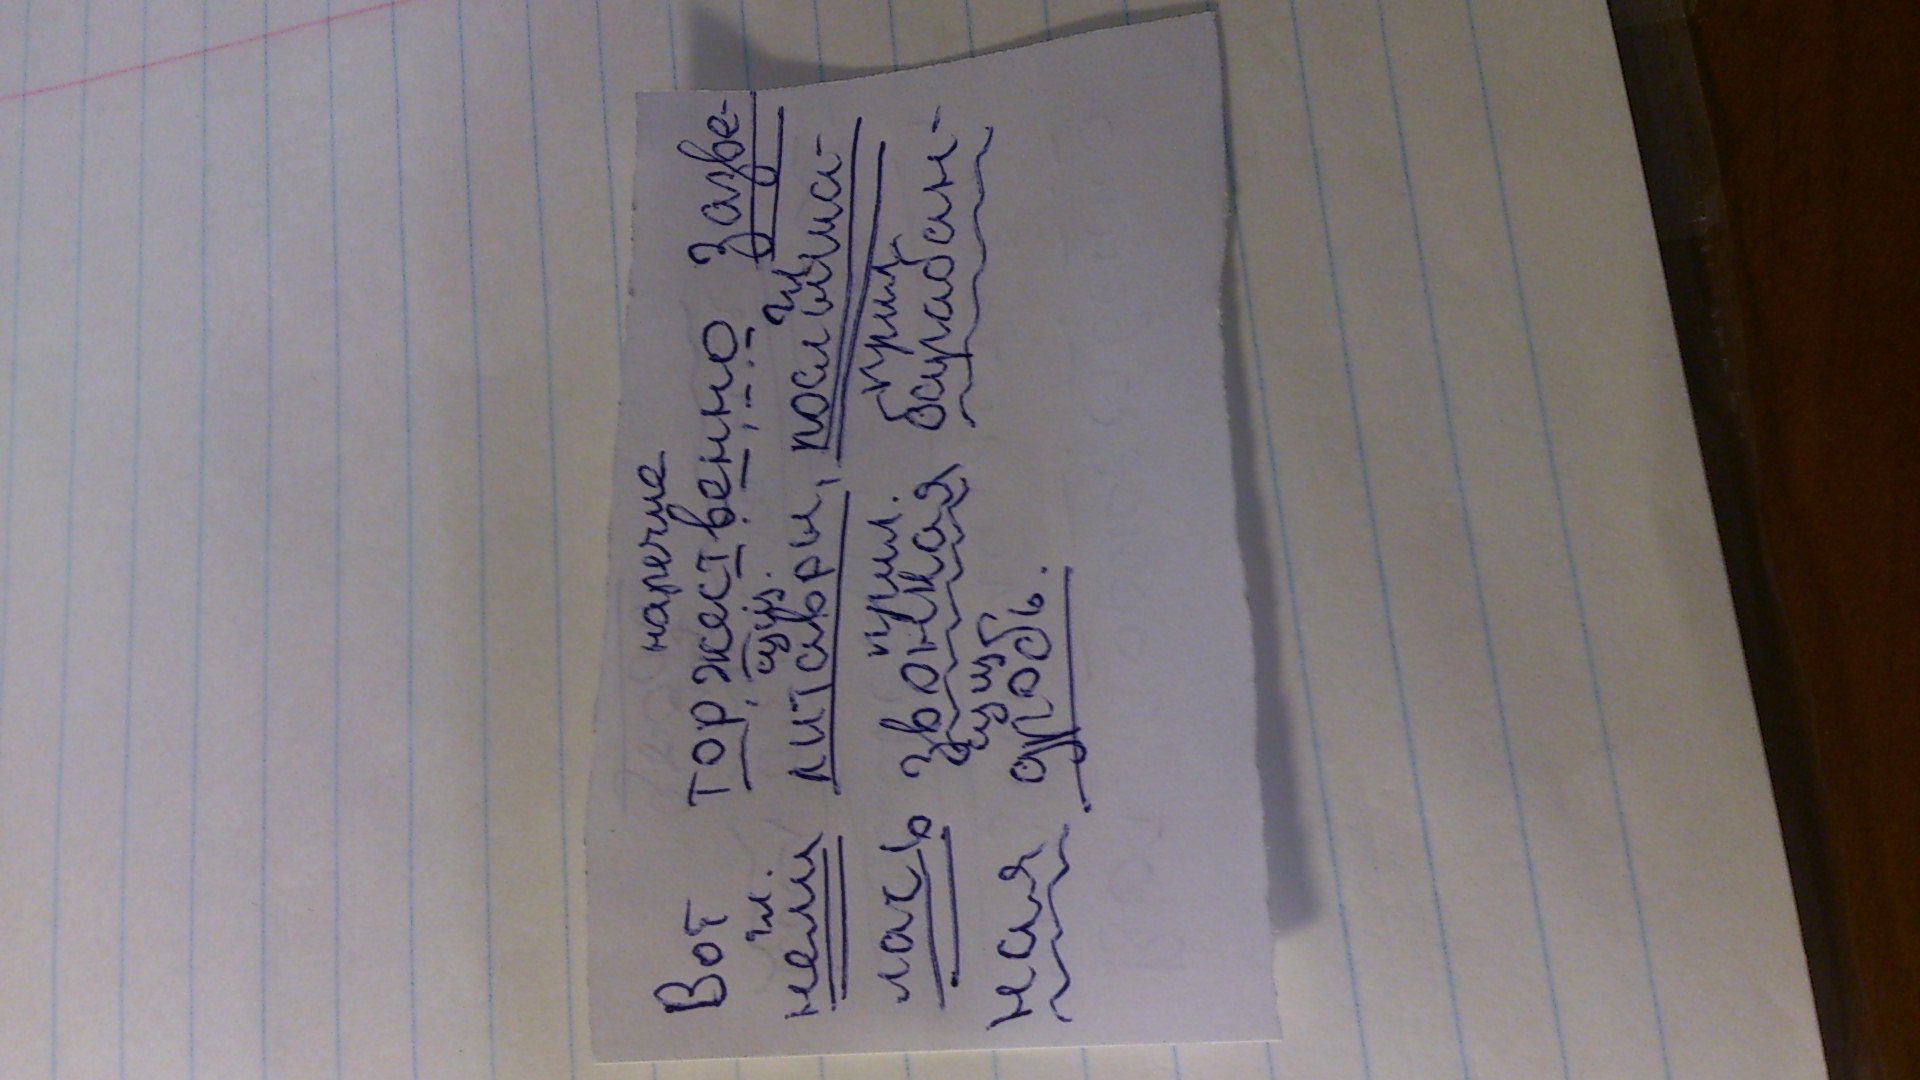 наречие
Вот торжественно зазве-
гл. сущ. гл
нели литавры, послышa-
прил. прил
лась звонкая барабан-
сущ
ная дробь.